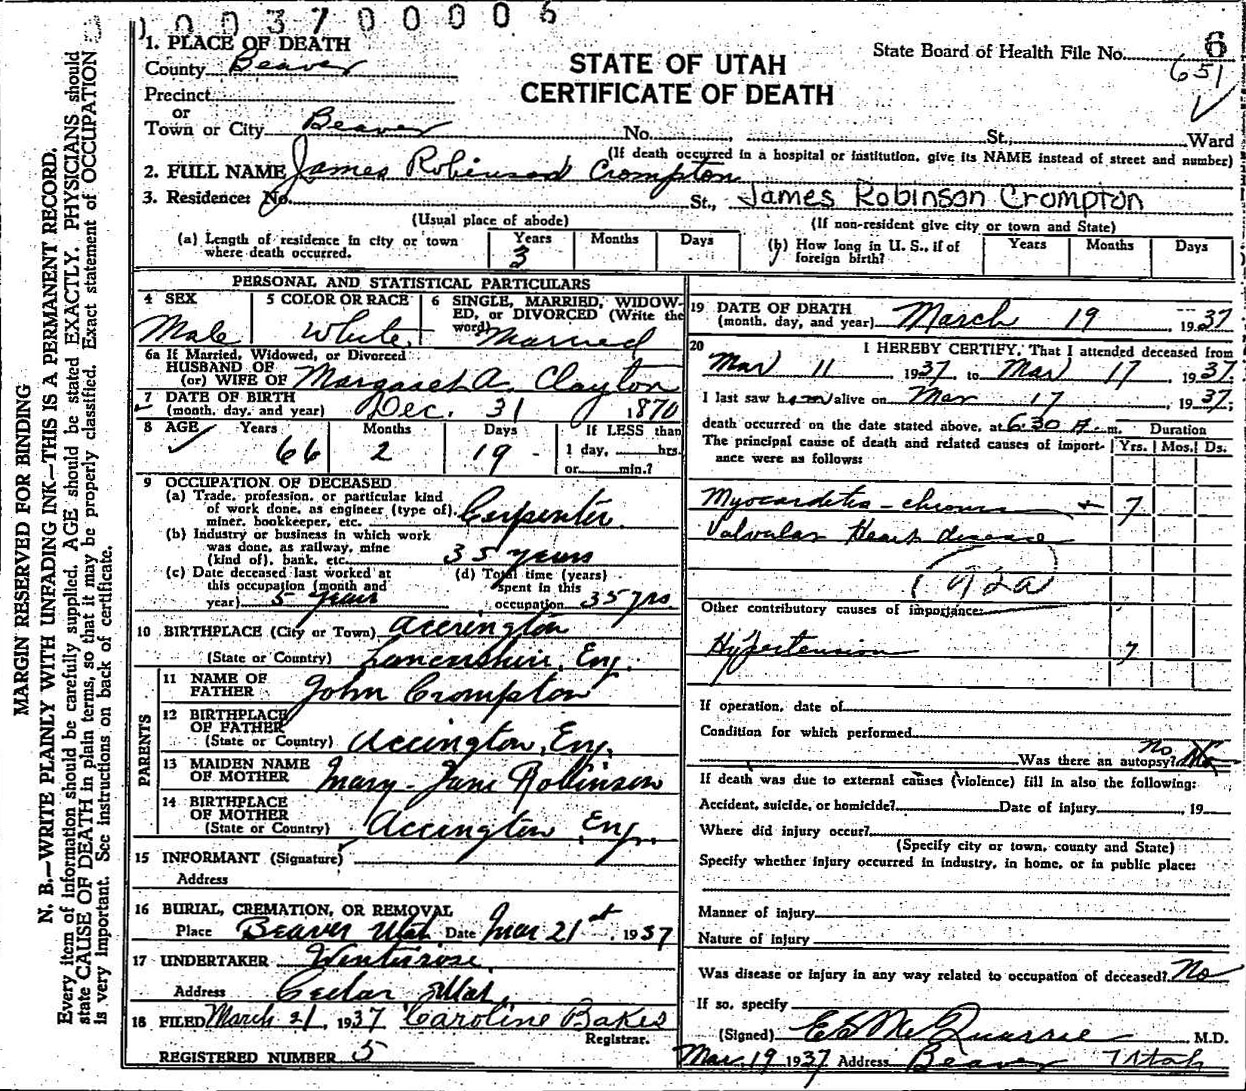 1003700006
1. PLACE OF DEATH
County Beaver
Precinct
or
Town or City Beaver No. St., Ward
STATE OF UTAH
CERTIFICATE OF DEATH
State Board of Health File No. 6
651
(If death occurred in a hospital or institution, give its NAME instead of street and number)
2. FULL NAME James Robinson Crompton
3. Residence: No. St., James Robinson Crompton
(Usual place of abode) (If non-resident give city or town and State)
(a) Length of residence in city or town where death occurred. Years 3 Months Days
(b) How long in U. S., if of foreign birth? Years Months Days
PERSONAL AND STATISTICAL PARTICULARS
4 SEX Male
5 COLOR OR RACE White
6 SINGLE, MARRIED, WIDOWED, or DIVORCED (Write the word) Married
6a If Married, Widowed, or Divorced
HUSBAND OF
(or) WIFE OF Margaret A. Clayton
7 DATE OF BIRTH
(month, day, and year) Dec. 31 1870
8 AGE Years 66 Months 2 Days 19
If LESS than
1 day, hrs.
or min.?
9 OCCUPATION OF DECEASED
(a) Trade, profession, or particular kind
of work done, as engineer (type of),
miner, bookkeeper, etc. Carpenter
(b) Industry or business in which work
was done, as railway, mine
(kind of), bank, etc. 35 years
(c) Date deceased last worked at
this occupation (month and
year) 5 years
(d) Total time (years)
spent in this
occupation 35 yrs.
10 BIRTHPLACE (City or Town) Accrington
(State or Country) Lancashire, Eng.
PARENTS
11 NAME OF
FATHER John Crompton
12 BIRTHPLACE
OF FATHER
(State or Country) Accington, Eng.
13 MAIDEN NAME
OF MOTHER Mary Jane Robinson
14 BIRTHPLACE
OF MOTHER
(State or Country) Accington Eng.
15 INFORMANT (Signature)
Address
16 BURIAL, CREMATION, OR REMOVAL
Place Beaver Utah Date Mar 21st, 1937
17 UNDERTAKER
Address Cedar, Utah
18 FILED March 21, 1937 Caroline Baker
Registrar.
REGISTERED NUMBER 5
19 DATE OF DEATH
(month, day, and year) March 19, 1937
20 I HEREBY CERTIFY, That I attended deceased from
Mar 11 1937 to Mar 17, 1937;
I last saw him alive on Mar 17, 1937;
death occurred on the date stated above, at 6:30 A. m. Duration
The principal cause of death and related causes of importance were as follows: Yrs. Mos. Ds.
Myocarditis - chronic + 7
Valvular Heart disease
92a
Other contributory causes of importance:
Hypertension 7
If operation, date of
Condition for which performed
Was there an autopsy? No
If death was due to external causes (violence) fill in also the following:
Accident, suicide, or homicide? Date of injury , 19
Where did injury occur?
(Specify city or town, county and State)
Specify whether injury occurred in industry, in home, or in public place:
Manner of injury
Nature of injury
Was disease or injury in any way related to occupation of deceased? No
If so, specify
(Signed) E E McQuarrie, M.D.
Mar. 19 1937 Address Beaver Utah
MARGIN RESERVED FOR BINDING
N. B.—WRITE PLAINLY WITH UNFADING INK—THIS IS A PERMANENT RECORD.
Every item of information should be carefully supplied. AGE should be stated EXACTLY. PHYSICIANS should
state CAUSE OF DEATH in plain terms, so that it may be properly classified. Exact statement of OCCUPATION
is very important. See instructions on back of certificate.